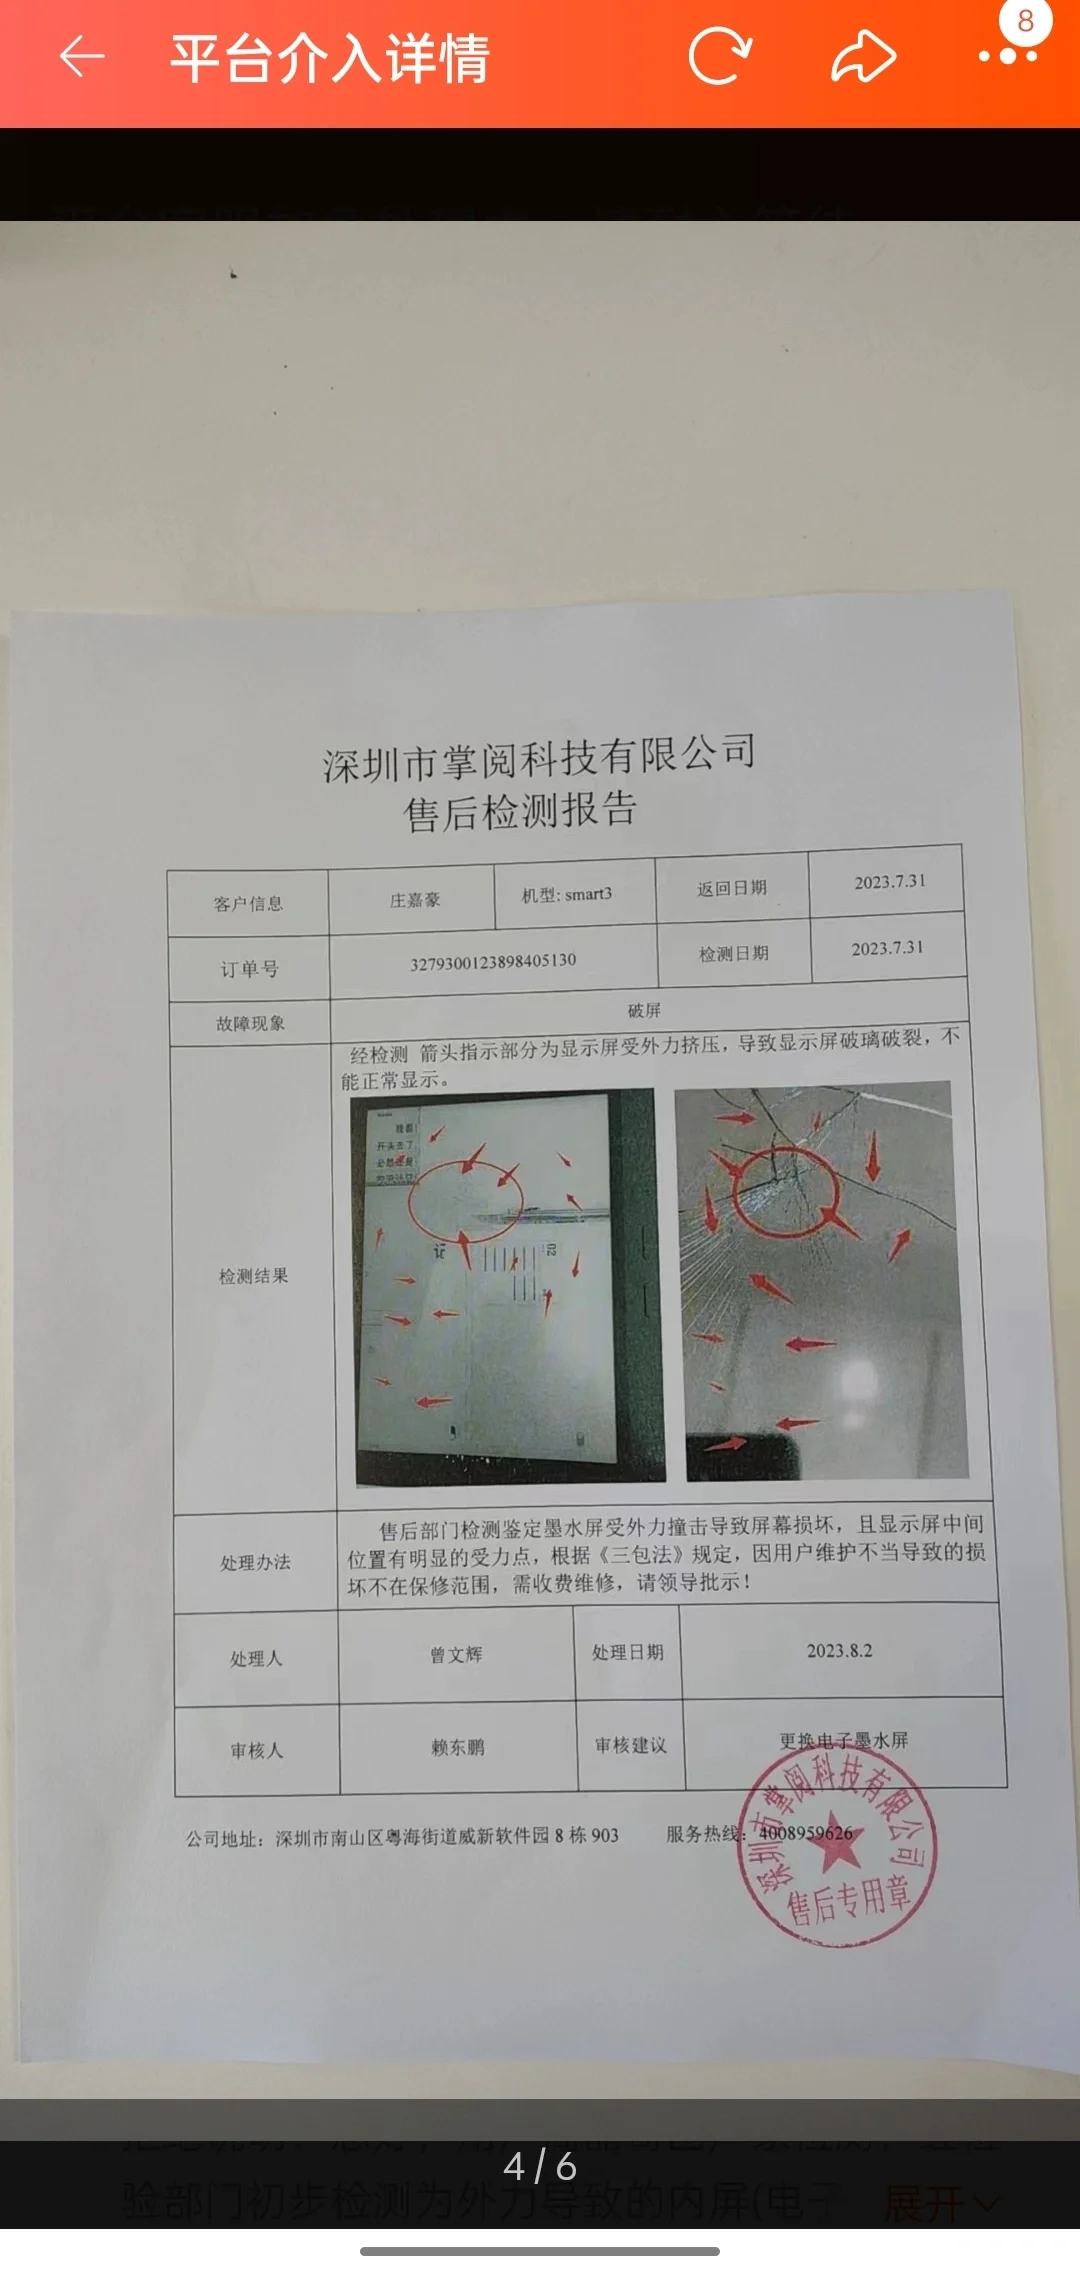 平台介入详情
8
深圳市掌阅科技有限公司
售后检测报告
客户信息 庄嘉豪 机型: smart3 返回日期 2023.7.31
订单号 3279300123898405130 检测日期 2023.7.31
故障现象 破屏
检测结果
经检测 箭头指示部分为显示屏受外力挤压，导致显示屏玻璃破裂，不
能正常显示。
处理办法
售后部门检测鉴定墨水屏受外力撞击导致屏幕损坏，且显示屏中间
位置有明显的受力点，根据《三包法》规定，因用户维护不当导致的损
坏不在保修范围，需收费维修，请领导批示！
处理人 曾文辉 处理日期 2023.8.2
审核人 赖东鹏 审核建议 更换电子墨水屏
公司地址：深圳市南山区粤海街道威新软件园 8 栋 903 服务热线：4008959626
深圳市掌阅科技有限公司
售后专用章
4/6
验部门初步检测为外力导致的内屏(电子 展开